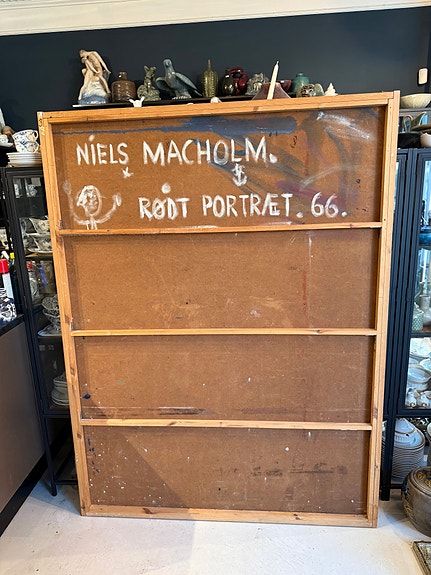 NIELS MACHOLM.
RØDT PORTRÆT. 66.